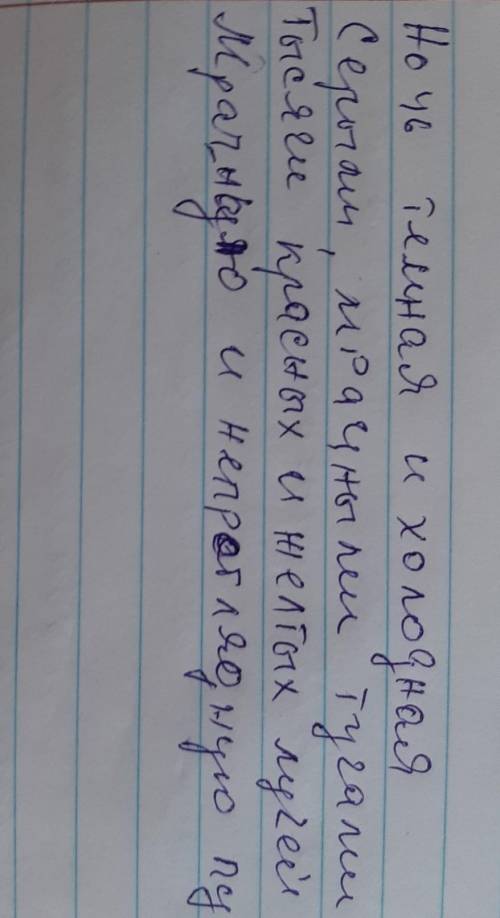 Ночь темная и холодная
Серыми, мрачными тучами
Тысячи красных и желтых лучей
Мрачную и непроглядную пу